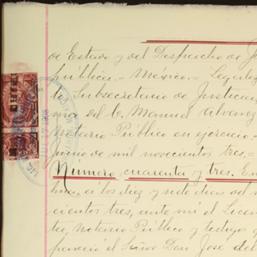 de Estado y del Despacho de J
Pública.- México.- Legaliz
El Subsecretario de Justicia
ma del C. Manuel Alvarez
Notario Público en ejercicio
junio de mil novecientos tres.-
Número cuarenta y tres. En
a los diez y siete dias del
cientos tres, ante mí el Licen
Notario Público y testigos
pareció el Señor Don José del